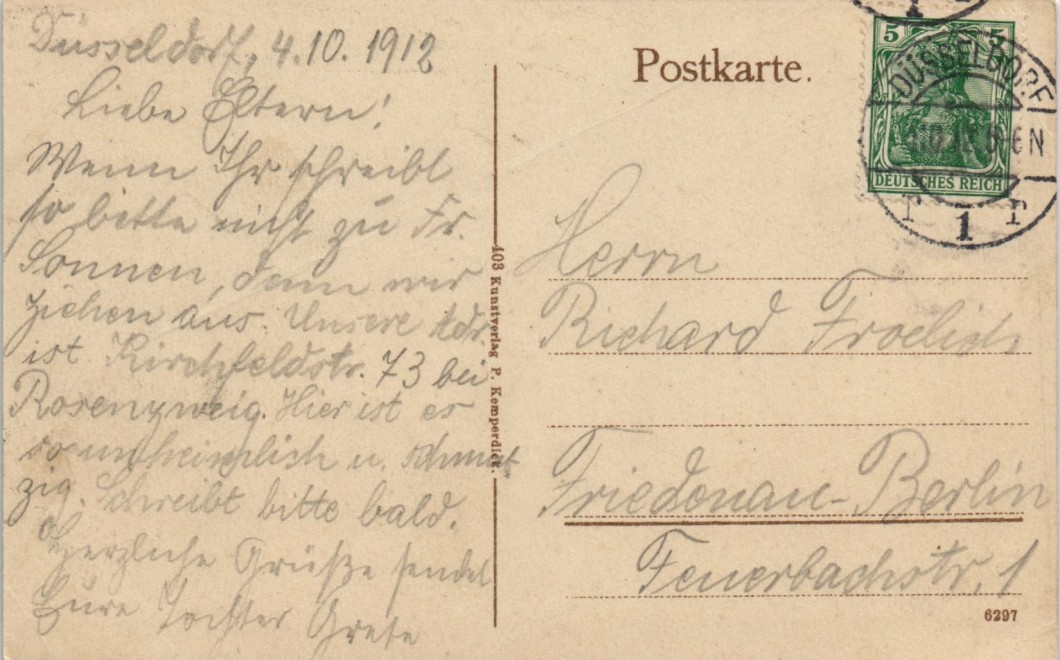 Düsseldorf, 4.10.1912
Liebe Eltern!
Wenn Ihr schreibt
so bitte nicht zu Fr.
Sonnen, denn wir
ziehen aus. Unsere Adr.
ist Kirchfeldstr. 73 bei
Rosenzweig. Hier ist es
so unheimlich u. schmut
zig. Schreibt bitte bald.
Herzliche Grüße sendet
Eure Tochter Grete
403 Kunstverlag P. Kemperdick.
Postkarte.
5 5
DEUTSCHES REICH
DÜSSELDORF
6 N
1
Herrn
Richard Froelich
Friedenau-Berlin
Feuerbachstr. 1
6297